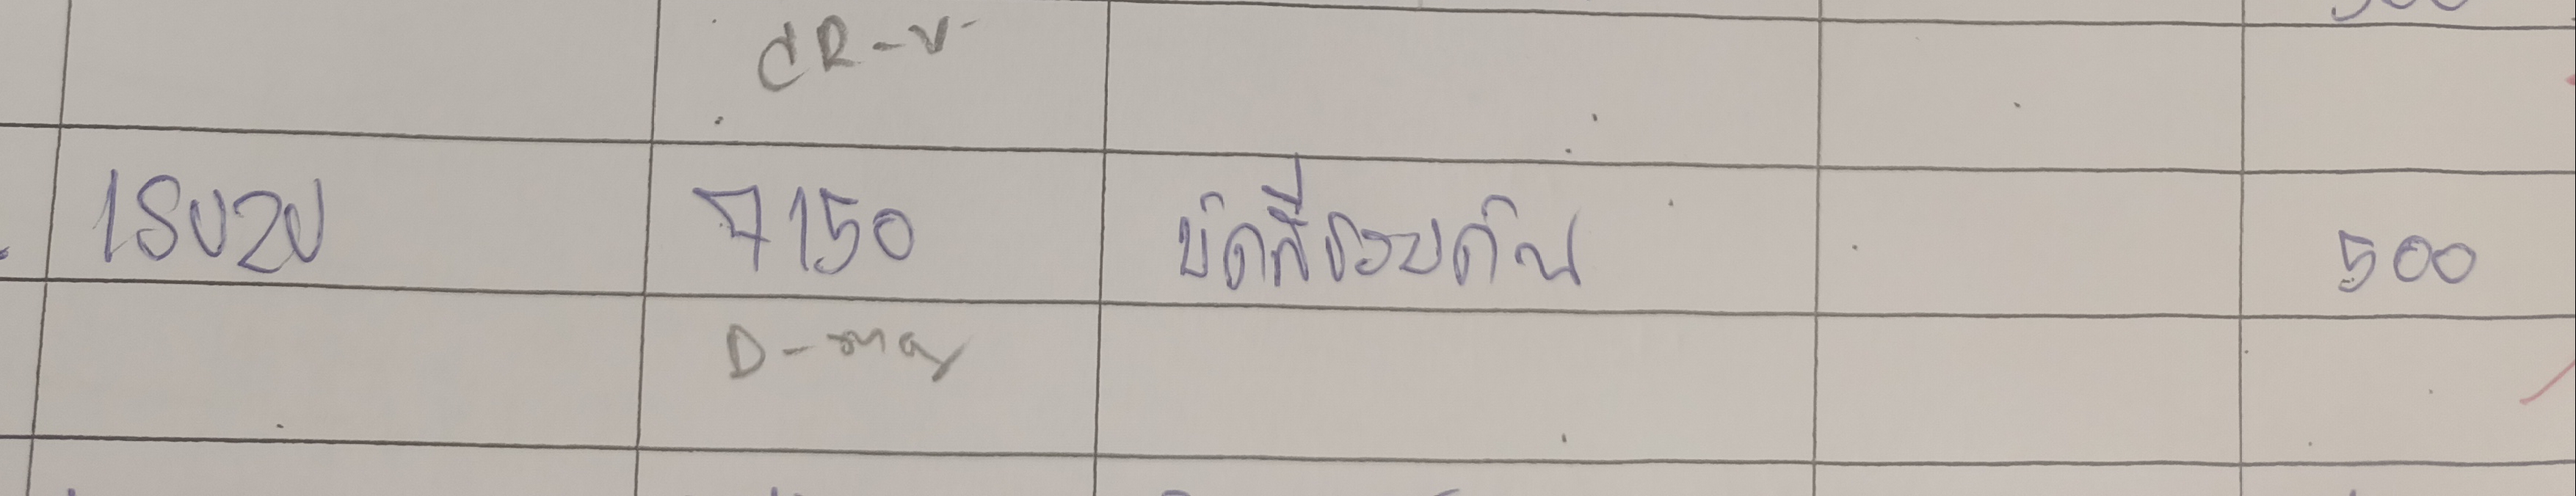 CR-V
7150
ขัดสีรอบคัน
500
D-max